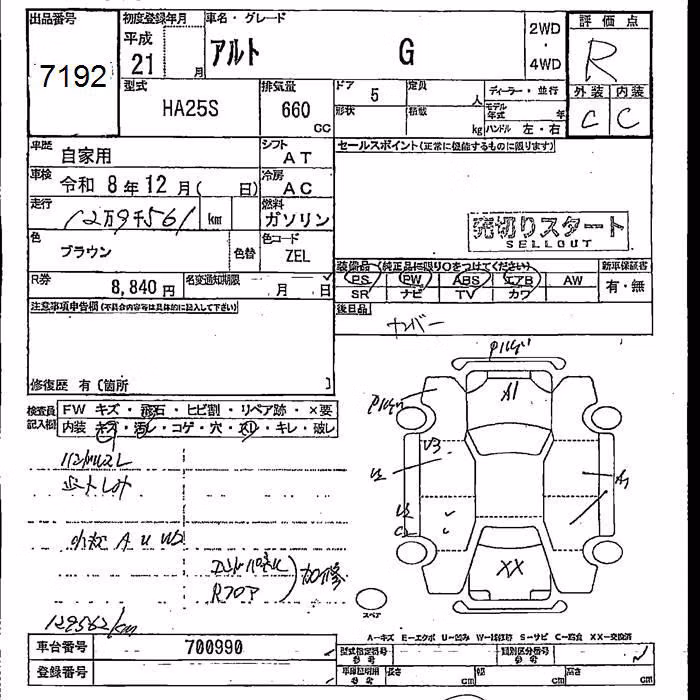 出品番号 初度登録年月 車名・グレード 2WD・4WD 評価点
7192 平成 21 月 アルト G R
型式 排気量 ドア 5 定員 人 ディーラー・並行 外装 内装
HA25S 660 cc 形状 積載 kg モデル年式 年 ハンドル 左・右 C C
車歴 自家用 シフト AT セールスポイント(正常に機能するものに限ります)
車検 令和 8年12月( 日) 冷房 AC
走行 12万9千561 km 燃料 ガソリン
売切りスタート
SELLOUT
色 ブラウン 色替 色コード ZEL
R券 8,840円 名変通知期限 月 日
装備品(純正品に限り○をつけてください) 新車保証書
PS PW ABS エアB AW 有・無
SR ナビ TV カワ
注意事項申告欄(不具合内容等は具体的に記入して下さい)
後日品 ナンバー
修復歴 有〔箇所 〕
検査員記入欄 FW キズ・飛石・ヒビ割・リペア跡・×要
内装 キズ・汚レ・コゲ・穴・スレ・キレ・破レ
A1
U3
シートしみ
小キズ A U
A1
XX
Rフロア
加修
スペア
129562km
A-キズ E-エクボ U-凹み W-補修跡 S-サビ C-腐食 XX-交換済
車台番号 700990 型式指定番号 参考 類別区分番号 参考
登録番号 車庫証明用 参考 長さ cm 幅 cm 高さ cm